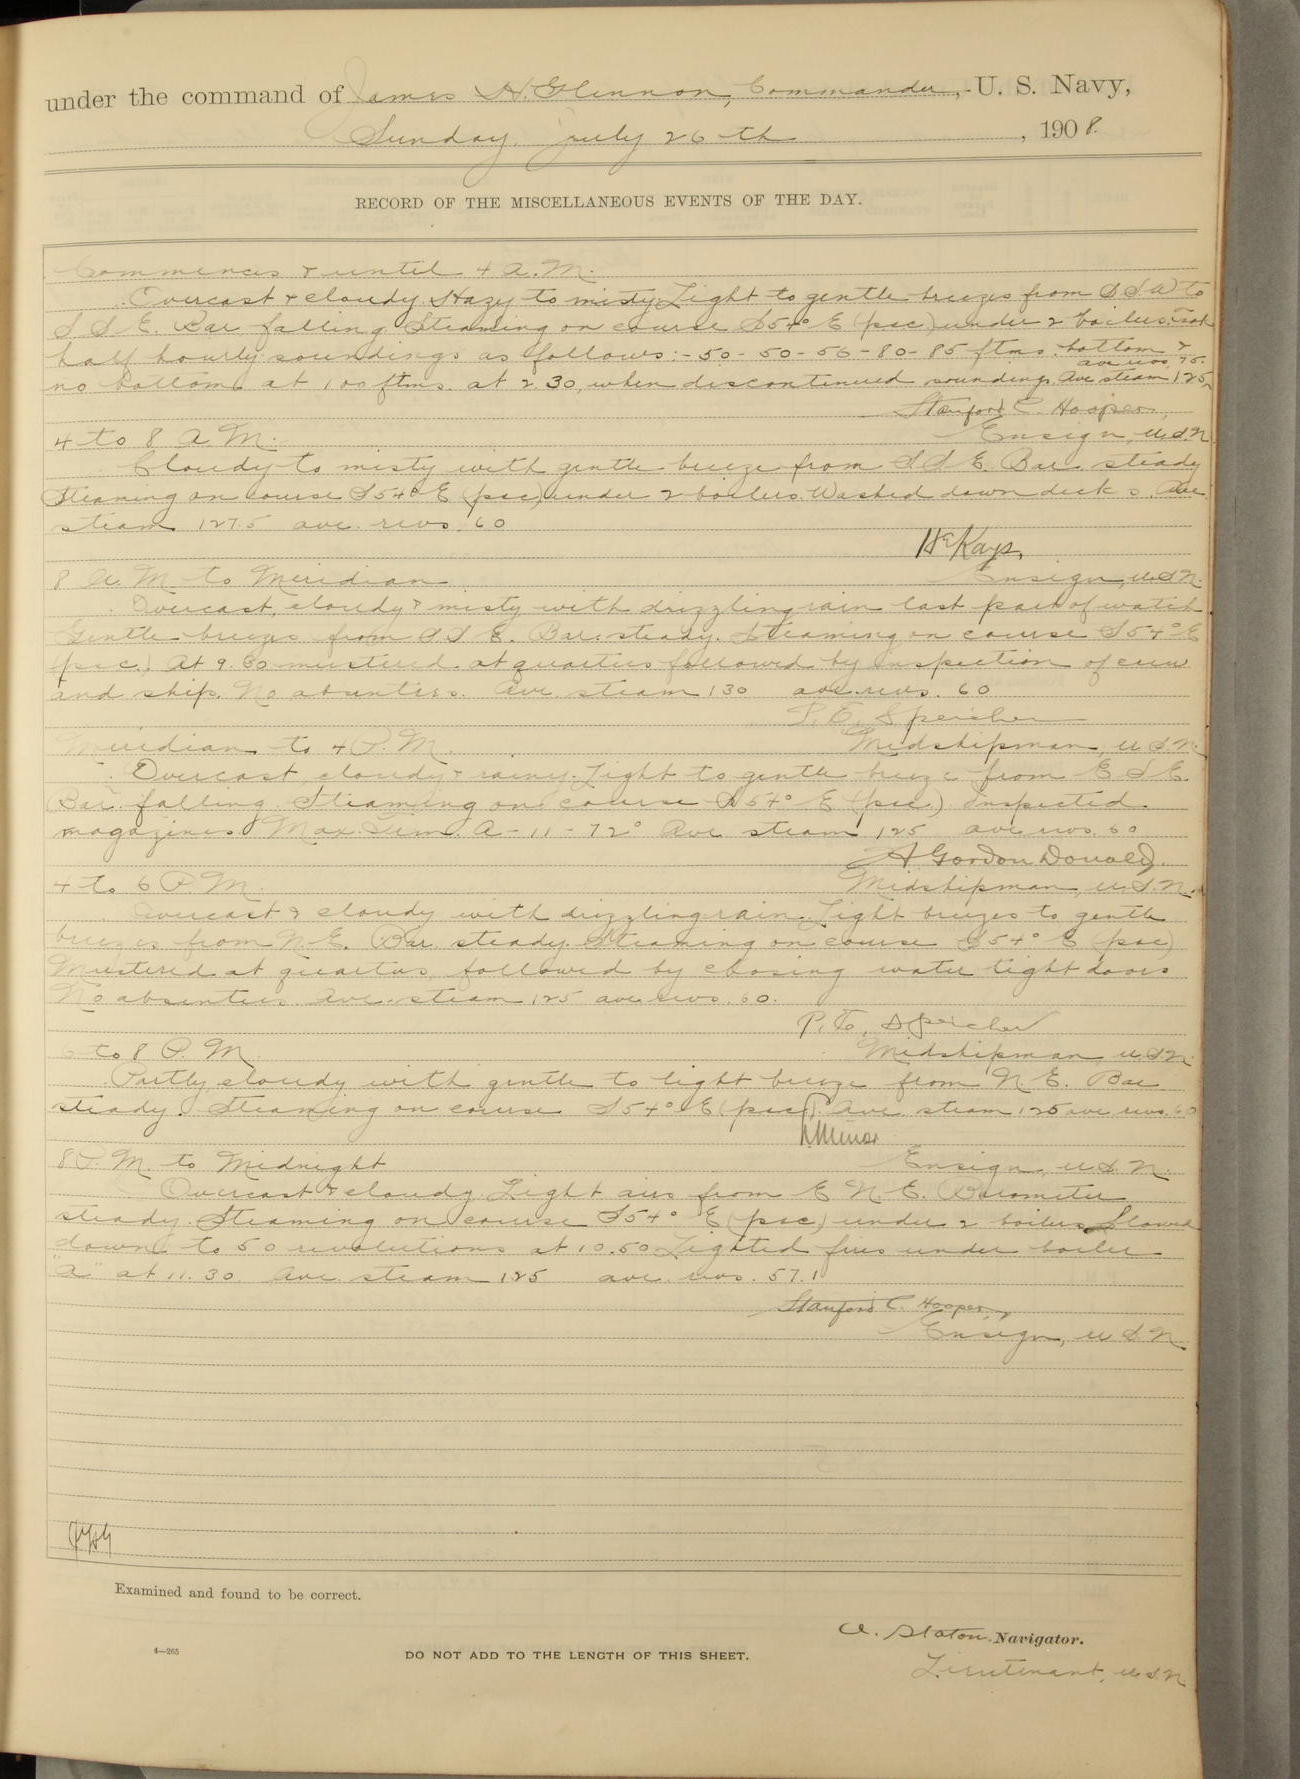 under the command of James H. Glennon, Commander, U. S. Navy,
Sunday, July 26th, 1908.
RECORD OF THE MISCELLANEOUS EVENTS OF THE DAY.
Commences & until 4 A.M.
Overcast & cloudy. Hazy to misty. Light to gentle breezes from S S W to
S S E. Bar falling. Steaming on course S 54° E (psc) under 2 boilers. Took
half hourly soundings as follows:- 50 - 50 - 56 - 80 - 85 ftms. bottom &
no bottom at 100 ftms. at 2.30, when discontinued soundings. Ave steam 125,
ave revs. 75.
Stanford C. Hooper,
4 to 8 A M.
Ensign, U.S.N.
Cloudy to misty with gentle breeze from S S E. Bar. steady
Steaming on course S 54° E (psc) under 2 boilers. Washed down decks. Ave
steam 127.5 ave. revs. 60
H E Kays,
8 A. M. to Meridian
Ensign, U.S.N.
Overcast, cloudy & misty with drizzling rain last part of watch
Gentle breezes from S S E. Bar. steady. Steaming on course S 54° E
(psc.) At 9.30 mustered at quarters followed by inspection of crew
and ship. No absentees. Ave steam 130 ave. revs. 60
P. E. Speicher
Meridian to 4 P. M.
Midshipman, U.S.N.
Overcast cloudy & rainy. Light to gentle breeze from E S E.
Bar. falling. Steaming on course S 54° E (psc.) Inspected
magazines. Max. Tem. A-11-72° Ave steam 125 ave revs. 60
A Gordon Donald.
4 to 6 P. M.
Midshipman, U.S.N.
Overcast & cloudy with drizzling rain. Light breezes to gentle
breezes from N. E. Bar. steady. Steaming on course S 54° E (psc)
Mustered at quarters followed by closing water tight doors
No absentees. Ave. steam 125 ave revs. 60.
P. E. Speicher
6 to 8 P. M.
Midshipman U.S.N.
Partly cloudy with gentle to light breeze from N E. Bar
steady. Steaming on course S 54° E (psc). Ave steam 125 ave revs. 60
Minor
8 P. M. to Midnight
Ensign, U.S.N.
Overcast & cloudy. Light airs from E N E. Barometer
steady. Steaming on course S 54° E (psc) under 2 boilers. Slowed
down to 50 revolutions at 10.50. Lighted fires under boiler
"A" at 11.30. Ave. steam 125 ave. revs. 57.1
Stanford C. Hooper,
Ensign, U.S.N.
Examined and found to be correct.
A. Staton, Navigator.
4—265
DO NOT ADD TO THE LENGTH OF THIS SHEET.
Lieutenant, U.S.N.